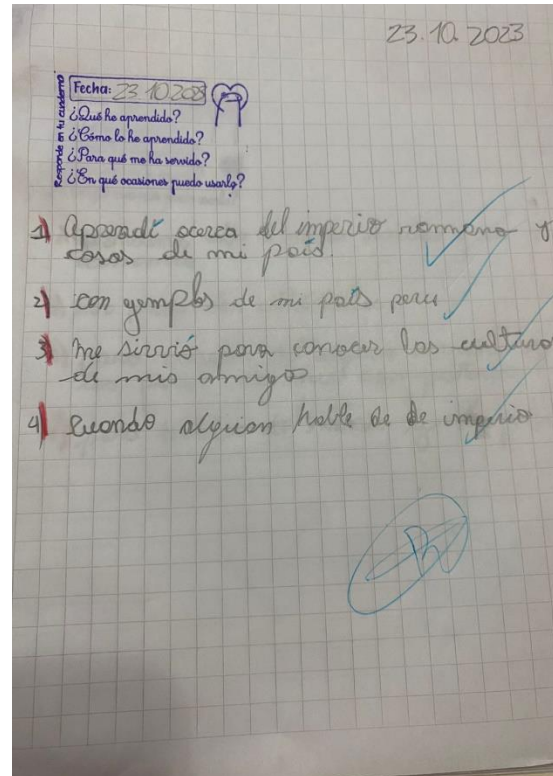 23.10.2023
Responde en tu cuaderno
Fecha: 23 10 2023
¿Qué he aprendido?
¿Cómo lo he aprendido?
¿Para qué me ha servido?
¿En qué ocasiones puedo usarlo?
1) Aprendí acerca del imperio romano y
cosas de mi país.
2) con ejemplos de mi país peru
3) me sirvió para conocer las cultura
de mis amigo
4) Cuando alguien hable de de imperio